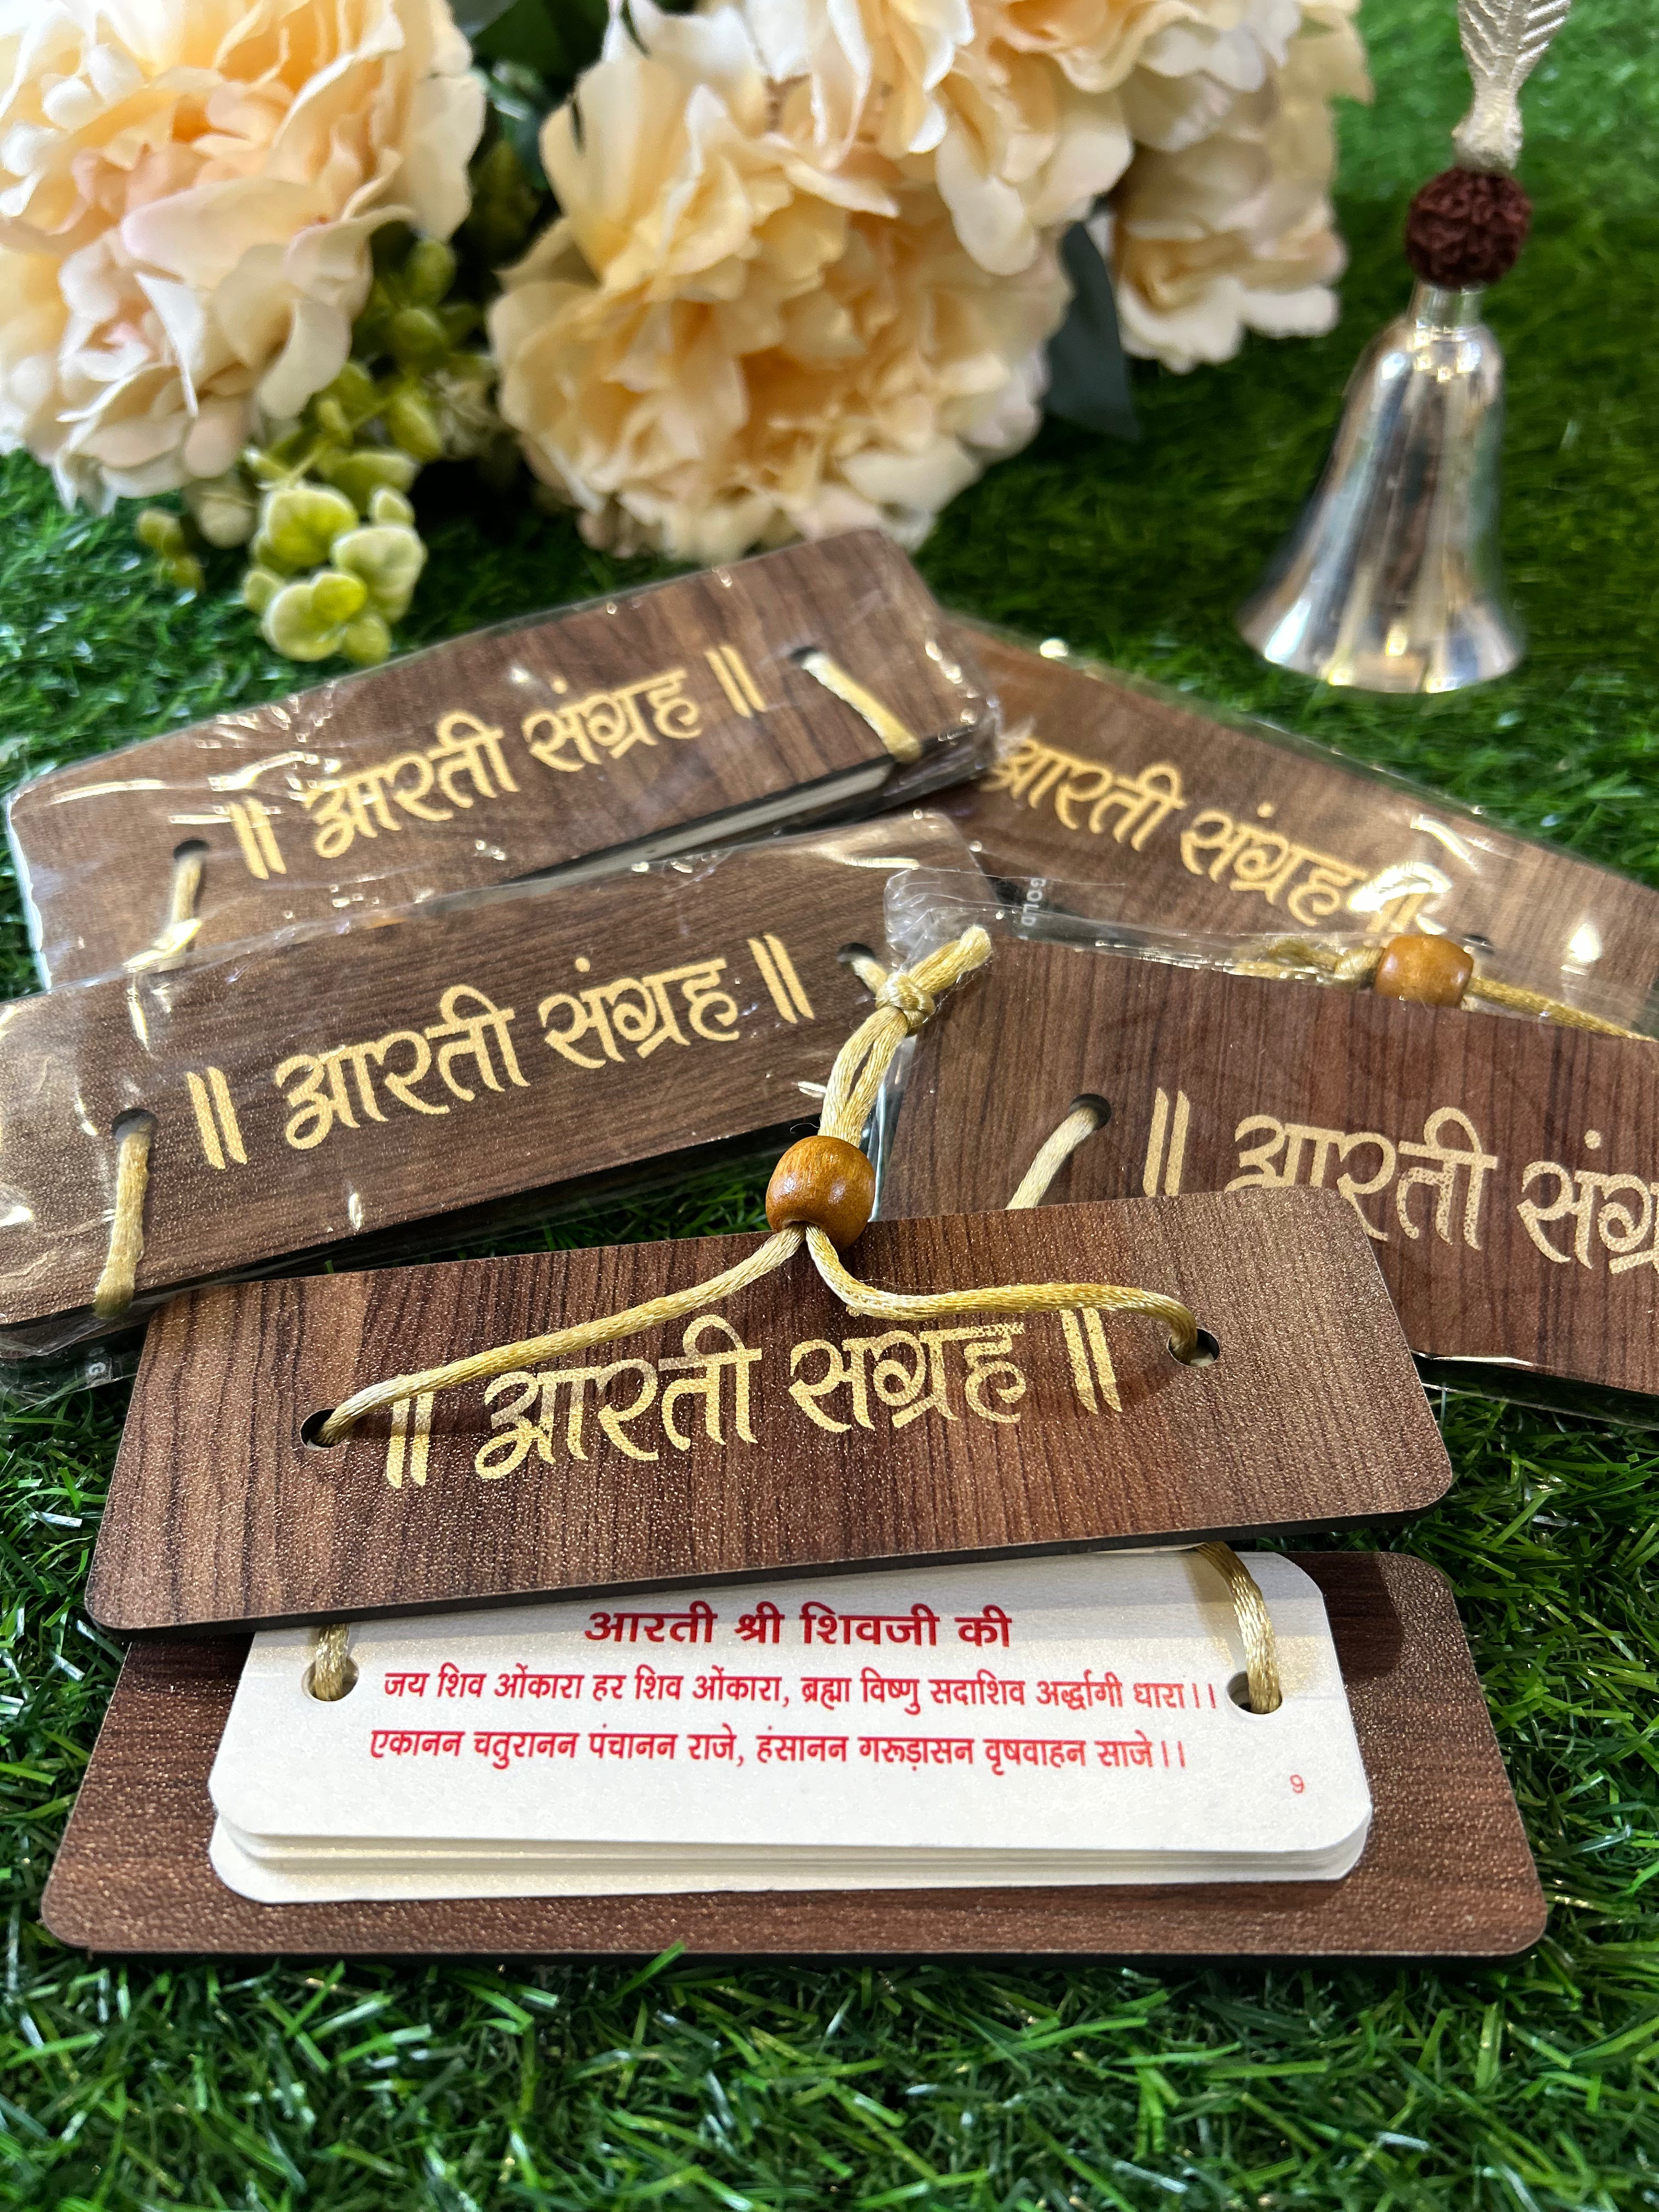 ॥ आरती संग्रह ॥
आरती संग्रह ॥
॥ आरती संग्रह ॥
॥ आरती संग्र
॥ आरती संग्रह ॥
आरती श्री शिवजी की
जय शिव ओंकारा हर शिव ओंकारा, ब्रह्मा विष्णु सदाशिव अर्द्धांगी धारा।।
एकानन चतुरानन पंचानन राजे, हंसानन गरूड़ासन वृषवाहन साजे।।
9